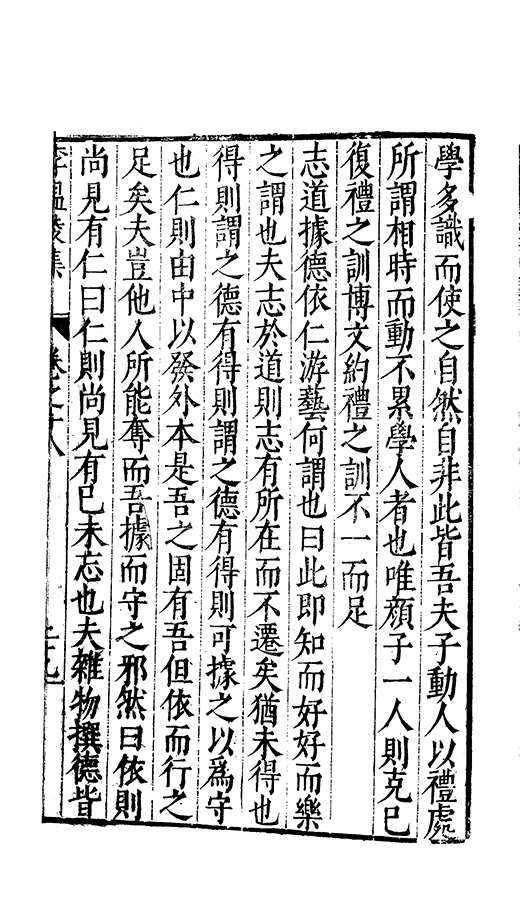 學多識而使之自然自非此皆吾夫子動人以禮處
所謂相時而動不累學人者也唯顏子一人則克己
復禮之訓博文約禮之訓不一而足
志道據德依仁游藝何謂也曰此即知而好好而樂
之謂也夫志於道則志有所在而不遷矣猶未得也
得則謂之德有得則謂之德有得則可據之以為守
也仁則由中以發外本是吾之固有吾但依而行之
足矣夫豈他人所能奪而吾據而守之邪然曰依則
尚見有仁曰仁則尚見有已未忘也夫雜物撰德皆
李溫陵集
卷之十八